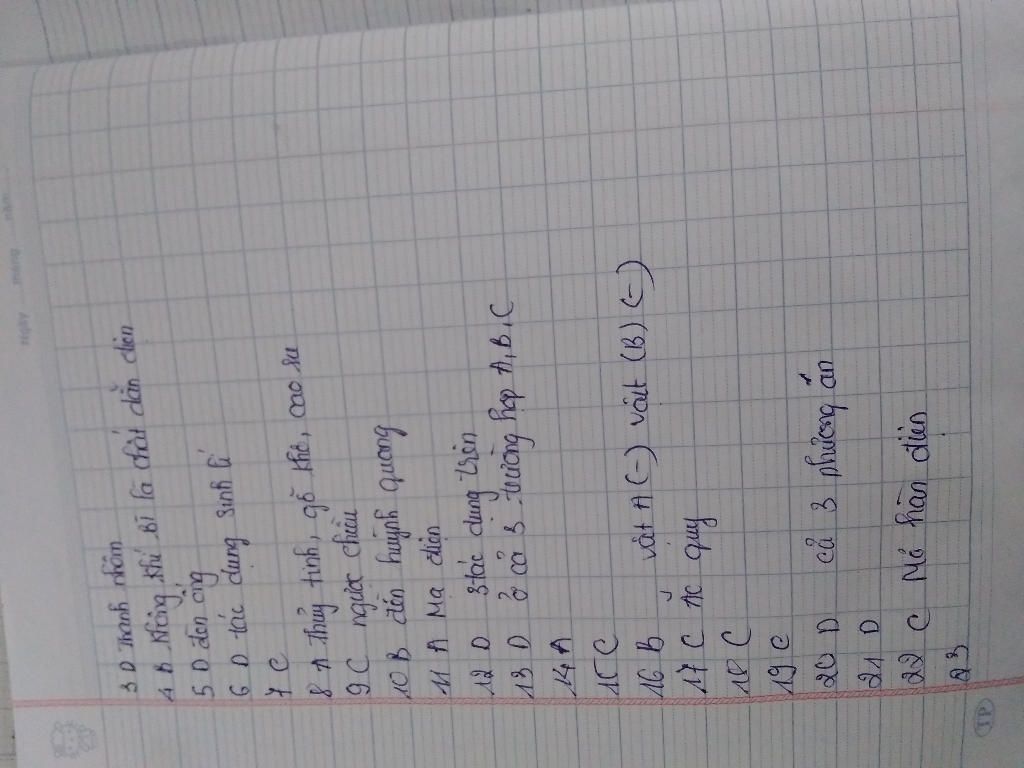 Ngày tháng năm
3 D mảnh nhôm
4 B không khí sĩ là chất dẫn điện
5 D đèn ống
6 D tác dụng sinh lí
7 C
8 A Thủy tinh, gỗ khô, cao su
9 C ngược chiều
10 B đèn huỳnh quang
11 A Mạ điện
12 D 3 tác dụng trên
13 D ở cả 3 trường hợp A, B, C
14 A
15 C
16 B vật A (-) vật (B) (-)
17 C Ắc quy
18 C
19 C
20 D cả 3 phương án
21 D
22 C Mỏ hàn điện
23
TP